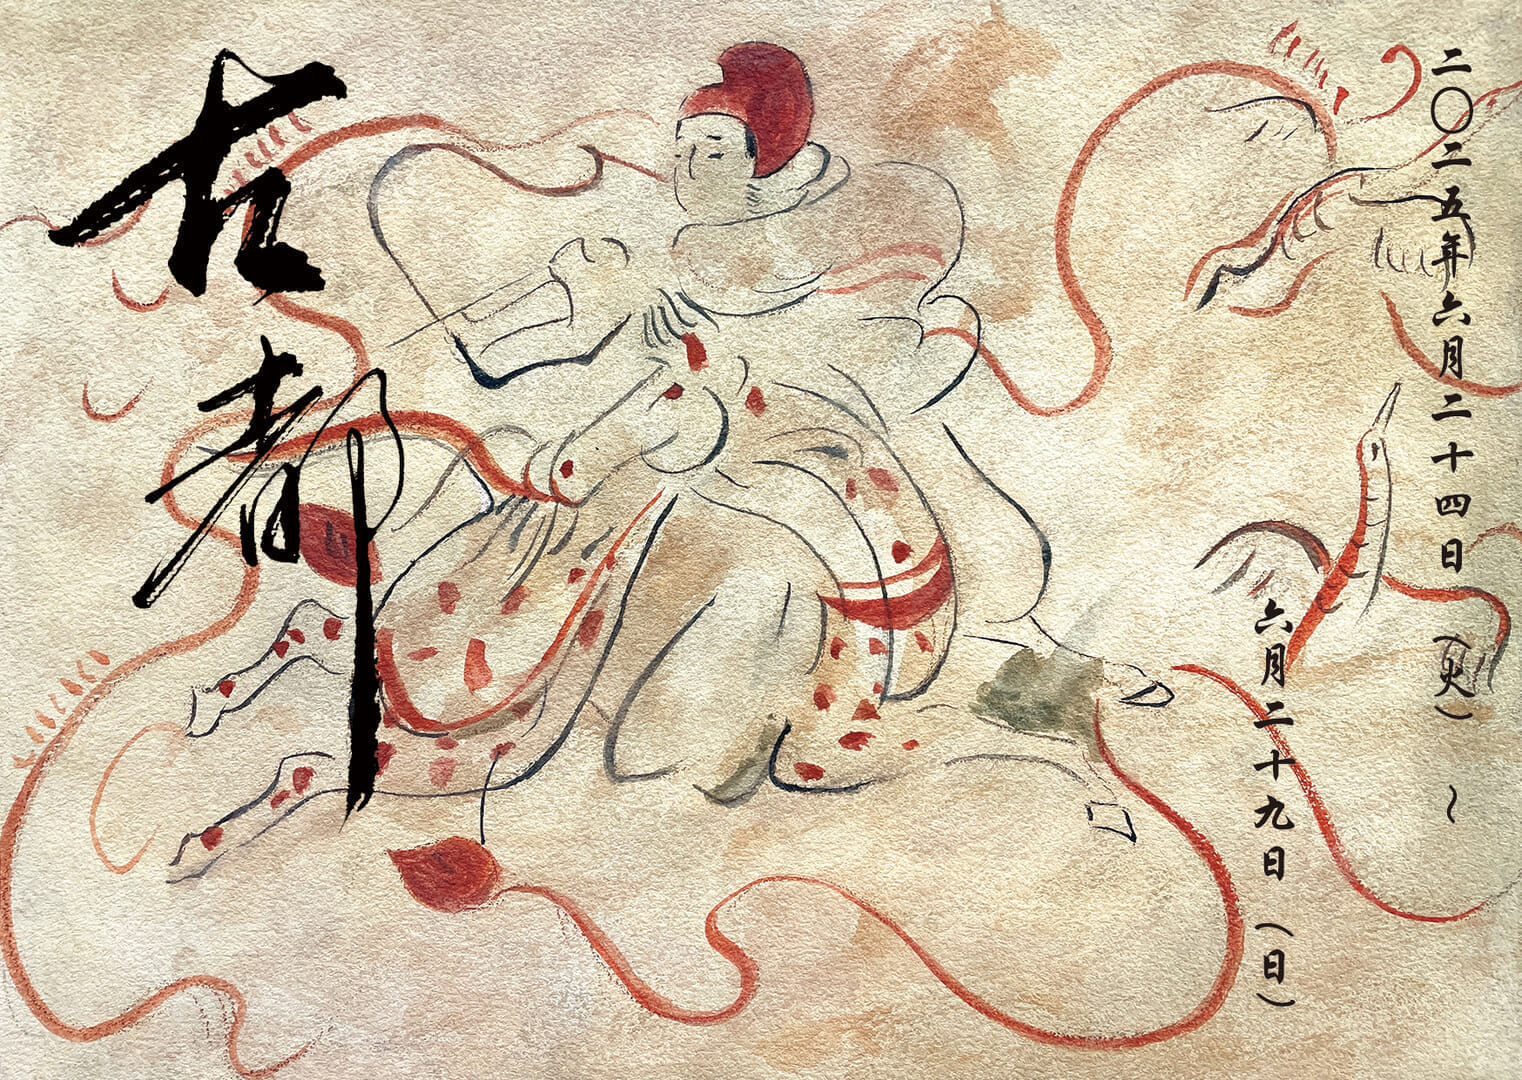 二〇二五年六月二十四日(火)~
六月二十九日(日)
古都